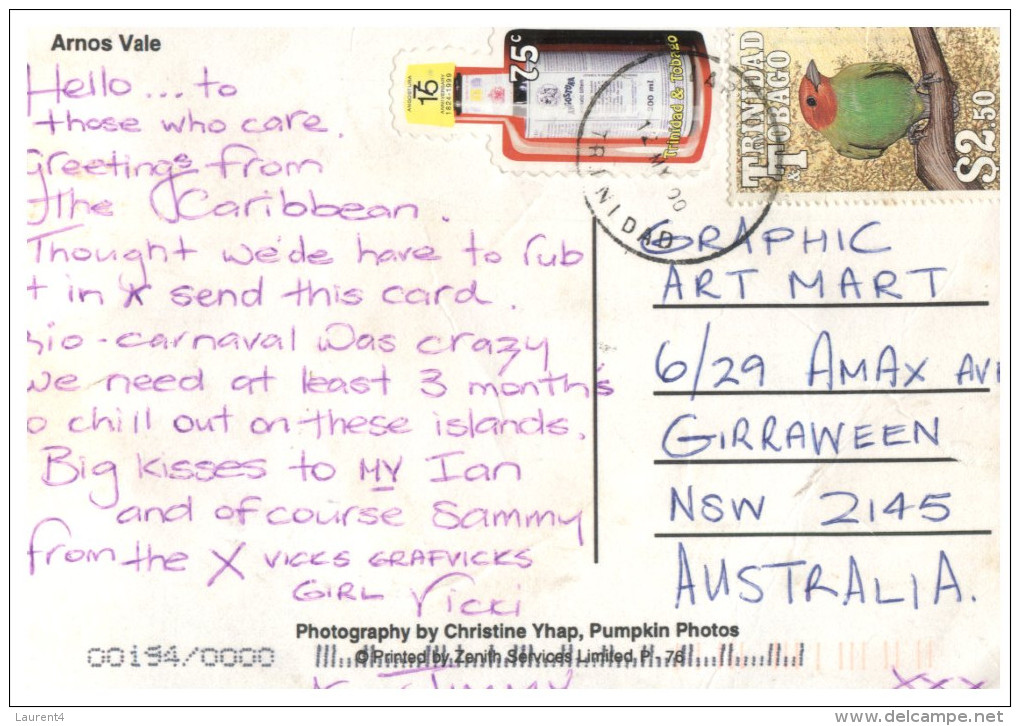 Arnos Vale
Hello... to
those who care.
Greetings from
the Caribbean.
Thought we'de have to rub
t in & send this card.
io-carnaval was crazy
we need at least 3 month's
o chill out on these islands.
Big kisses to MY Ian
and of course Sammy
from the X VICKS GRAFVICKS
GIRL Vicki
75c
ANNIVERSARY
1824-1999
Trinidad & Tobago
TRINIDAD
& TOBAGO
$2.50
TRINIDAD
GRAPHIC
ART MART
6/29 AMAX AV
GIRRAWEEN
NSW 2145
AUSTRALIA.
Photography by Christine Yhap, Pumpkin Photos
© Printed by Zenith Services Limited, P - 76
00194/0000
JIMMY
XXX
Laurent4
www.delcampe.net